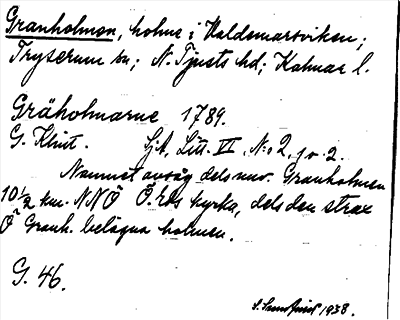 Granholmen, holme i Valdemarsviken;
Tryserum sn; N. Tjusts hd; Kalmar l.
Gräholmarne 1789.
G. Klint. Sj.A, Litt. VI, N:o 2, 1 o. 2.
Namnet avsåg dels nuv. Granholmen
10 1/2 km. NNÖ Ö. Eds kyrka, dels den strax
Ö Granh. belägna holmen.
G. 46.
1938.